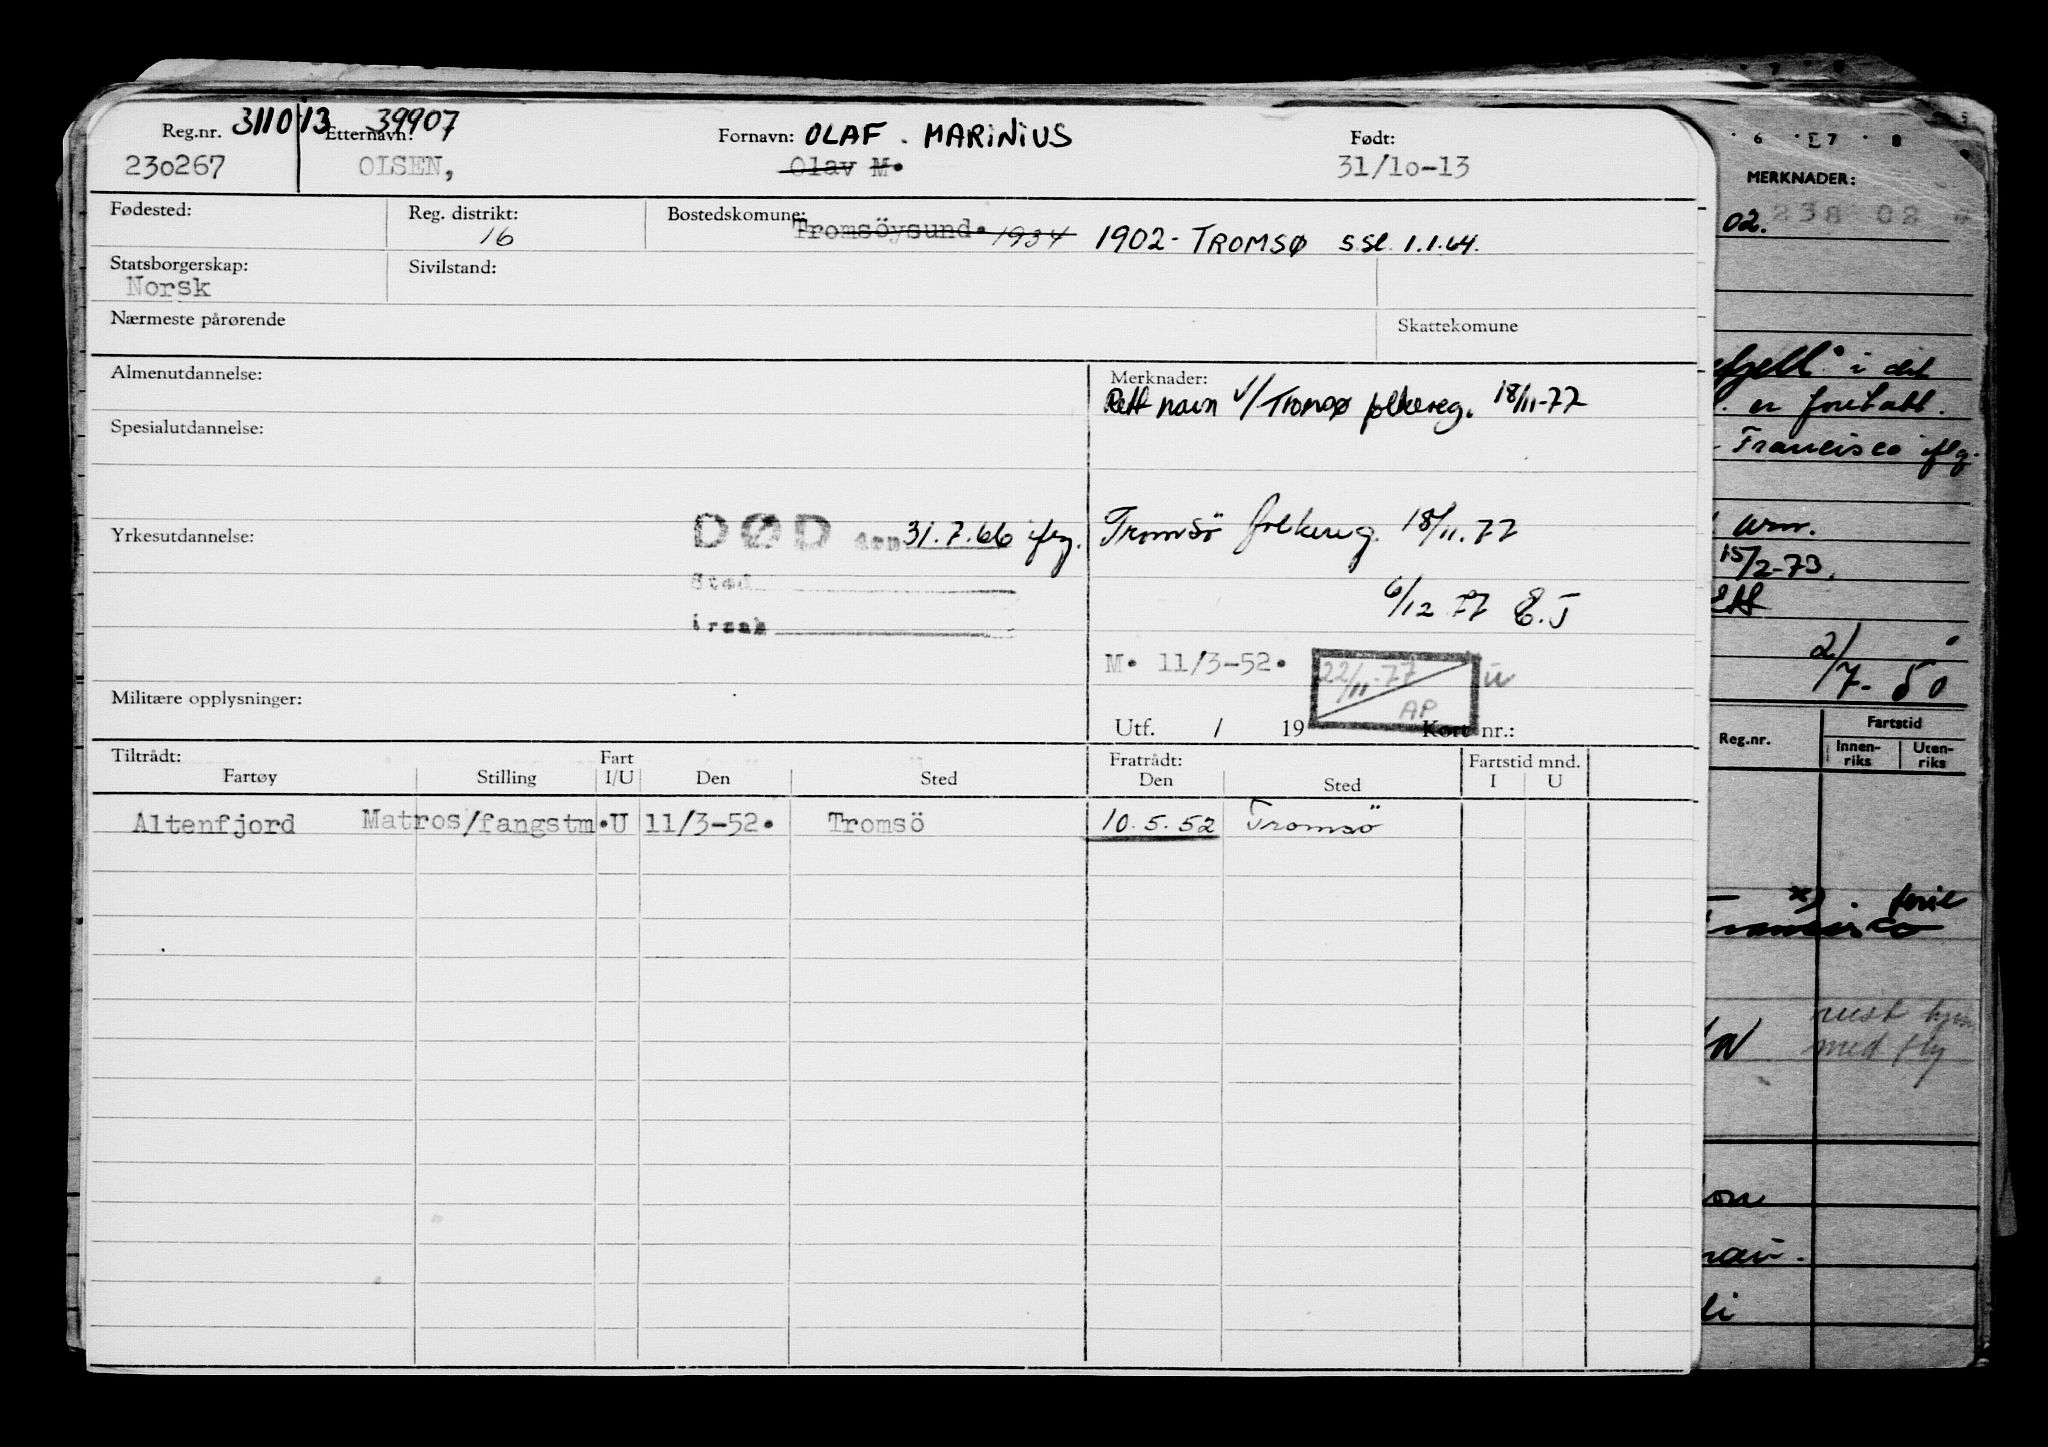 311013 39907
Reg.nr. Etternavn: Fornavn: OLAF. MARINIUS Født:
230267 OLSEN, Olav M. 31/10-13
Fødested: Reg. distrikt: Bostedskomune: Tromsöysund. 1934 1902- TROMSØ s.sl. 1.1.64.
16
Statsborgerskap: Sivilstand:
Norsk
Nærmeste pårørende Skattekomune
Almenutdannelse: Merknader:
Rett navn v/Tromsø folkereg. 18/11-77
Spesialutdannelse:
Yrkesutdannelse: DØD den 31.7.66 iflg. Tromsö folkereg. 18/11.77
Sted
6/12 77 E.J
årsak
M. 11/3-52. 22/11-77 AP
Militære opplysninger:
Utf. / 19 Kort nr.:
Tiltrådt: Fratrådt:
Fartøy Stilling Fart I/U Den Sted Den Sted Fartstid mnd. I U
Altenfjord Matros/fangstm. U 11/3-52. Tromsö 10.5.52 Tromsö
6 E7 8
MERKNADER:
02. 238 02
fjell" i det
. er foretatt.
Francisco iflg.
15/2-73.
2/7- 50
Reg.nr. Fartstid
Innen-riks Uten-riks
x)
med fly